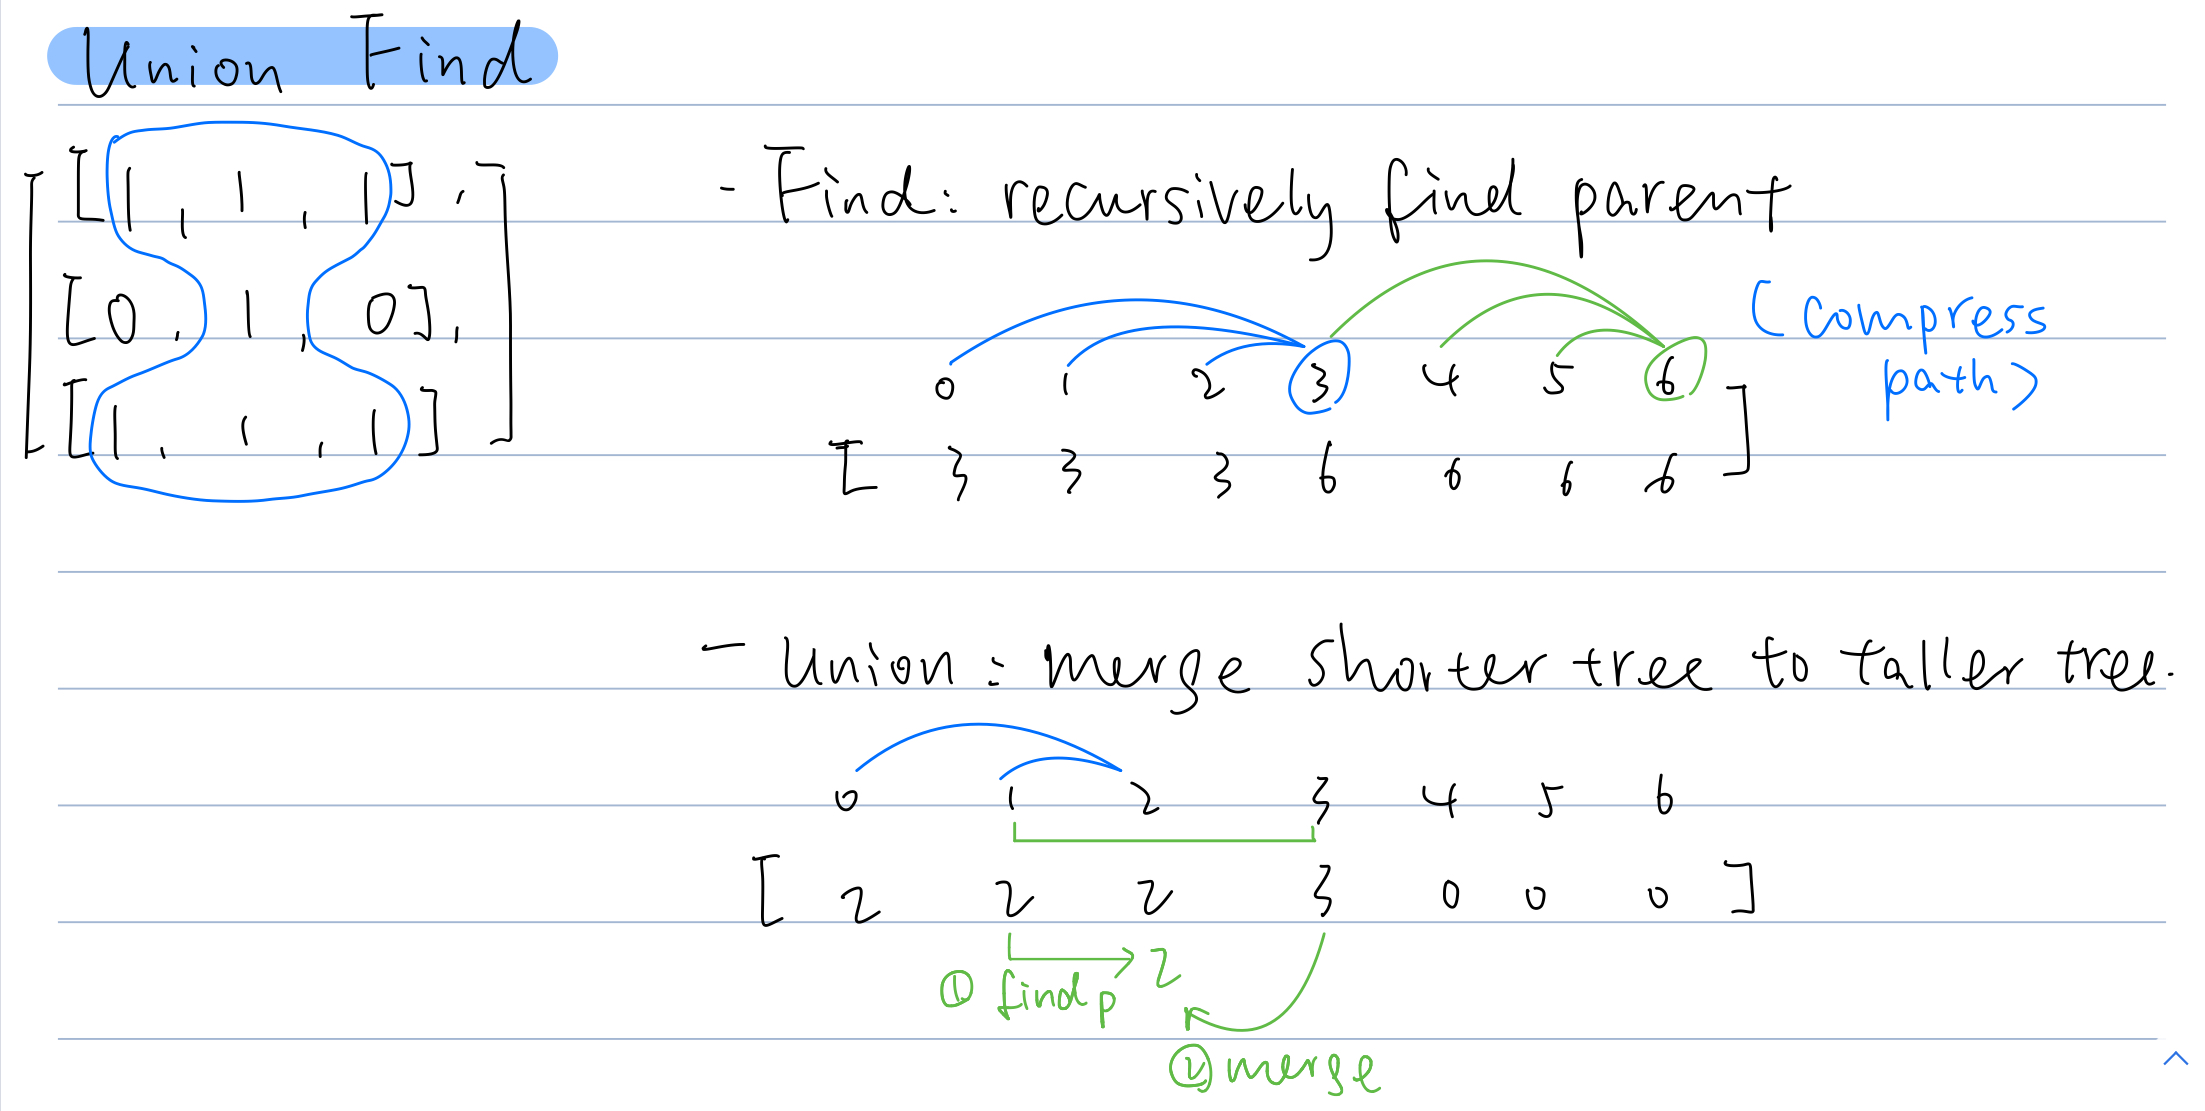 Union Find
[[1, 1, 1],
[0, 1, 0],
[1, 1, 1]]
- Find: recursively find parent
(compress
path)
0 1 2 3 4 5 6
[ 3 3 3 6 6 6 6 ]
- Union: merge shorter tree to taller tree.
0 1 2 3 4 5 6
[ 2 2 2 3 0 0 0 ]
① find p 2
② merge